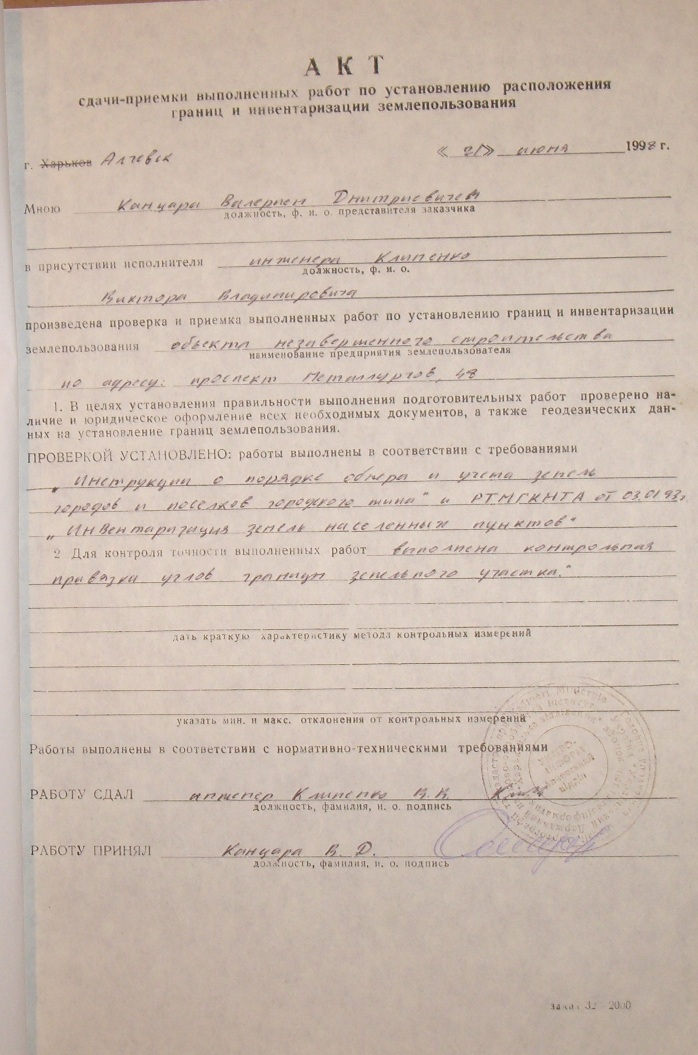 АКТ
сдачи-приемки выполненных работ по установлению расположения
границ и инвентаризации землепользования
г. Харьков Алчевск « 21» июня 1998 г.
Мною Канцара Валерием Дмитриевичем
должность, ф. и. о. представителя заказчика
в присутствии исполнителя инженера Клипенко
должность, ф. и. о.
Виктора Владимировича
произведена проверка и приемка выполненных работ по установлению границ и инвентаризации
землепользования объекта незавершенного строительства
наименование предприятия землепользователя
по адресу: проспект Металлургов, 48
1. В целях установления правильности выполнения подготовительных работ проверено на-
личие и юридическое оформление всех необходимых документов, а также геодезических дан-
ных на установление границ землепользования.
ПРОВЕРКОЙ УСТАНОВЛЕНО: работы выполнены в соответствии с требованиями
„Инструкции о порядке обмера и учета земель
городов и поселков городского типа" и РТМГКНТА от 03.01.93г.
„Инвентаризация земель населенных пунктов"
2 Для контроля точности выполненных работ выполнена контрольная
привязка углов границ земельного участка."
дать краткую характеристику метода контрольных измерений
указать мин. и макс. отклонения от контрольных измерений
Работы выполнены в соответствии с нормативно-техническими требованиями
РАБОТУ СДАЛ инженер Клипенко В. В.
должность, фамилия, и. о. подпись
РАБОТУ ПРИНЯЛ Канцара В. Д.
должность, фамилия, и. о. подпись